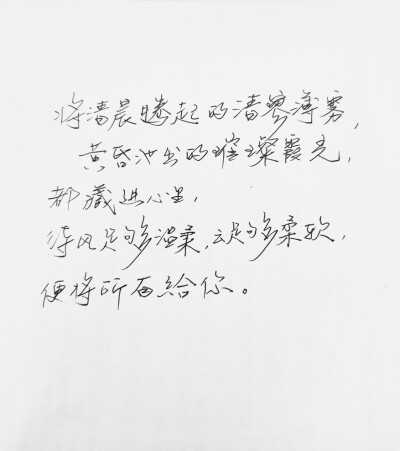 将清晨腾起的清寥薄雾，
黄昏池出的璀璨霞光，
都藏进心里，
待风足够温柔，云足够柔软，
便将所有给你。